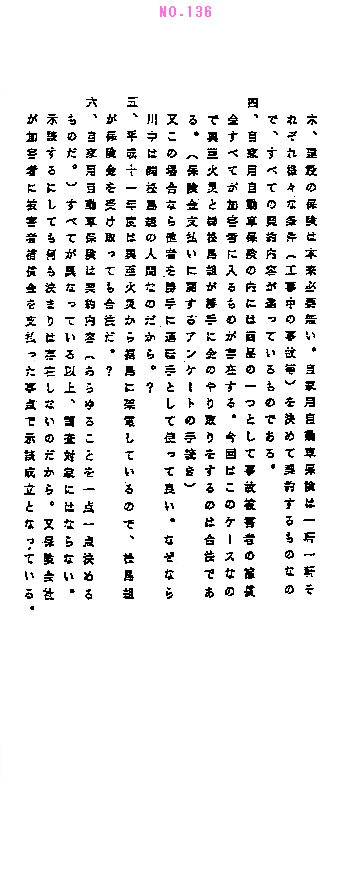 NO.136
末、建設の保険は本来必要無い。自家用自動車保険は一軒一軒そ
れぞれ様々な条件（工事中の事故等）を決めて契約するものなの
で、すべての契約内容が違っているものである。
四、自家用自動車保険の内には商品の一つとして事故被害者の補償
金すべてが加害者に入るものが存在する。今回はこのケースなの
で興亜火災と㈱松島組が勝手に金のやり取りをするのは合法であ
る。（保険金支払いに関するアンケートの手続き）
又この場合なら他者を勝手に運転手として使って良い。なぜなら
川中は㈱松島組の人間なのだから。？
五、平成十一年度は興亜火災から福島に架電しているので、松島組
が保険金を受け取っても合法だ。？
六、自家用自動車保険は契約内容（あらゆることを一点一点決める
ものだ。）すべてが異なっている以上、調査対象にはならない。
示談するにしても何も決まりは存在しないのだから。又保険会社
が加害者に被害者補償金を支払った時点で示談成立となっている。